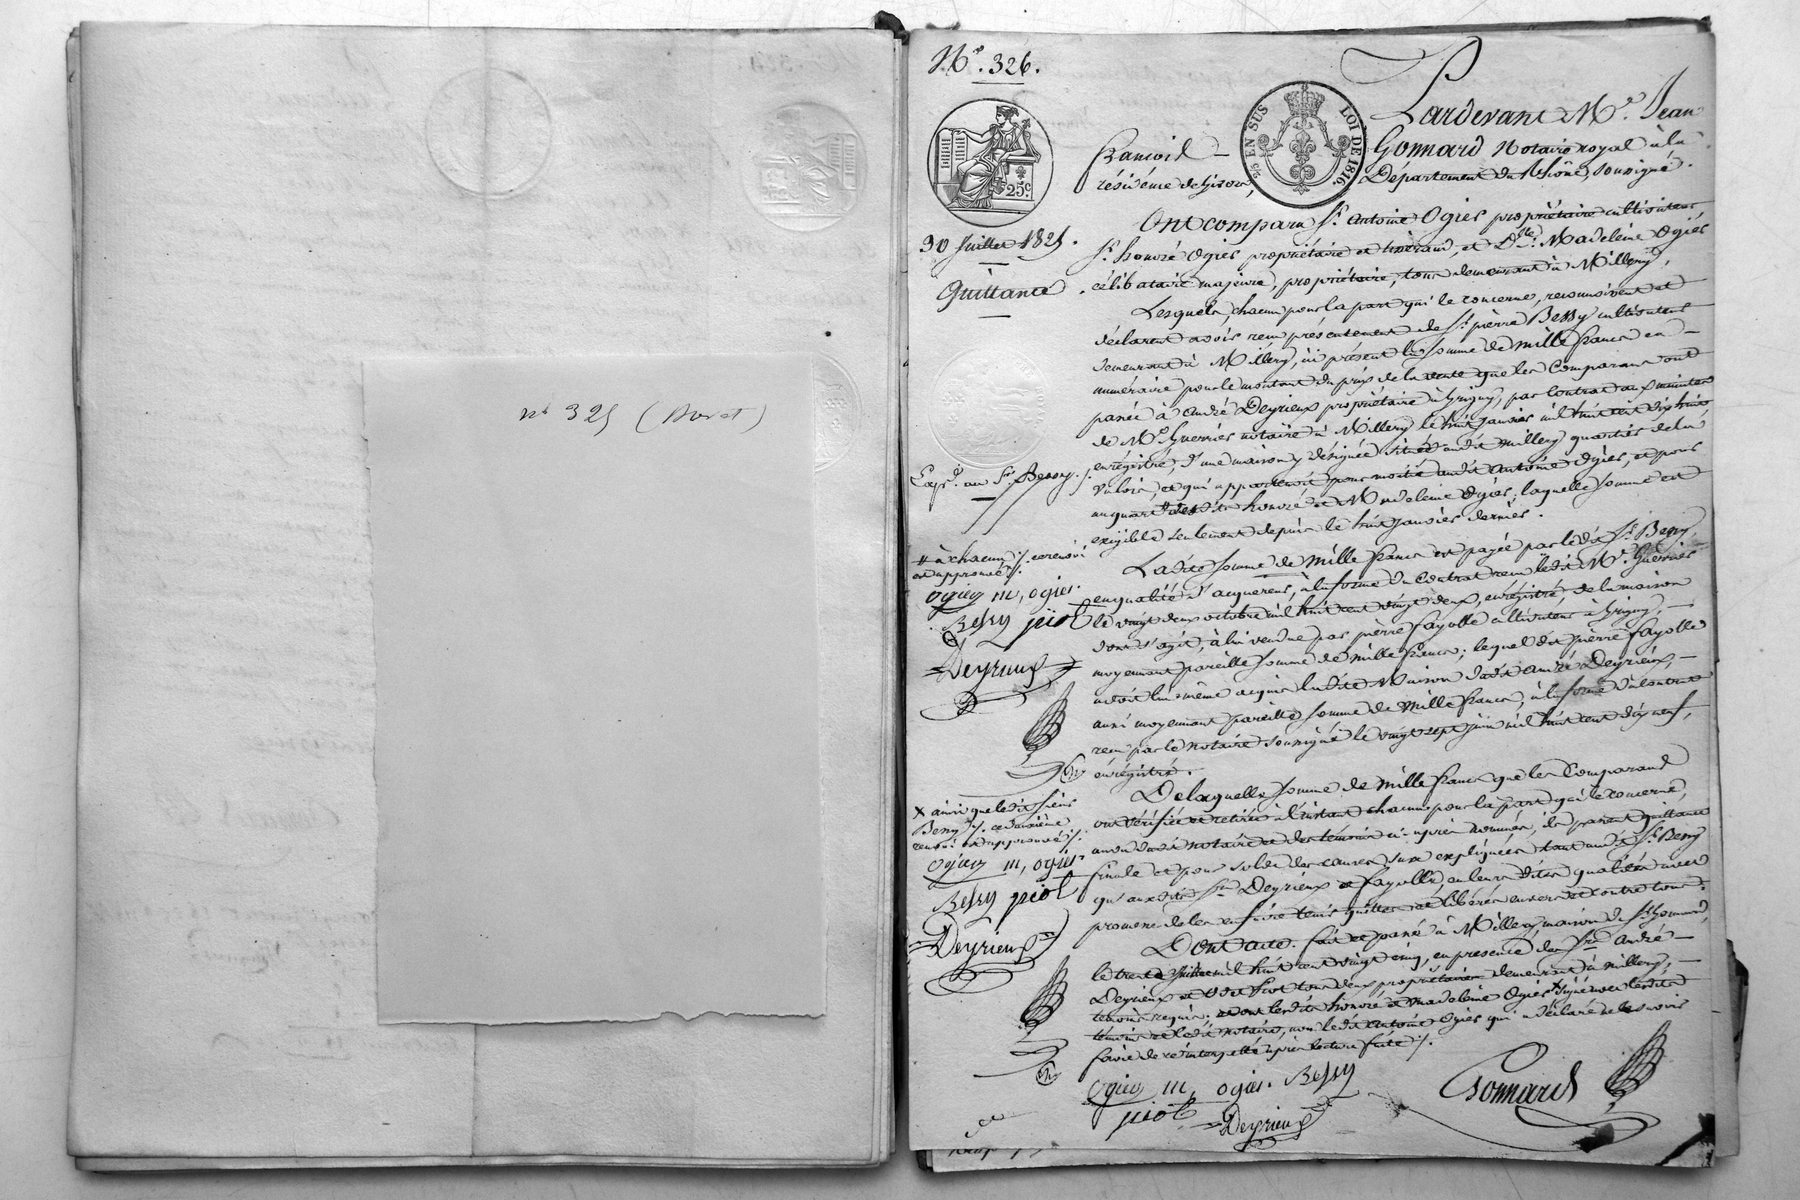 nº 325 (Duret)
Nº. 326.
Pardevant Mᵉ. Jean
François — Gonnard Notaire royal à la
résidence de Givors, Département du Rhône, soussigné.
⅖ EN SUS LOI DE 1816.
25ᶜ
30 Juillet 1825.
Quittance
Ont comparu Sʳ. Antoine Ogier propriétaire cultivateur
Sʳ. honoré Ogier propriétaire et tisserand, et Dˡˡᵉ. Madeleine Ogier
célibataire majeure, propriétaire, tous demeurant à Millery,
Lesquels, chacun pour la part qui le concerne, reconnoissent et
déclarent avoir reçu présentement de Sʳ. pierre Bessy cultivateur
demeurant à Millery, ici présent la somme de mille francs en —
numéraire pour le montant du prix de la vente que les Comparans ont
passée à André Deyrieux propriétaire à Grigny, par Contrat aux minutes
de Mᵉ. Guerrier notaire à Millery le huit janvier mil huit cent dix huit,
enregistré, d'une maison y désignée située audit Millery quartier de la
et qui appartenoit pour moitié audit Antoine Ogier, et pour
un quart auxdits honoré et Madeleine Ogier; laquelle somme est
exigible seulement depuis le huit janvier dernier.
Expᵉ. au Sʳ. Bessy./.
La dite somme de mille francs est payée par le dit Sʳ. Bessy,
en qualité d'acquéreur, à la forme du Contrat reçu ledit Mᵉ. Guerrier
le vingt deux octobre mil huit cent vingt deux, enregistré, de la maison
dont s'agit, à lui vendue par pierre fayolle cultivateur à Grigny, —
moyennant pareille somme de mille francs; lequel dit pierre fayolle
avoit lui-même acquis ladite Maison dudit André Deyrieux, —
aussi moyennant pareille somme de mille francs, à la forme du Contrat
reçu par le notaire soussigné le vingt sept juin mil huit cent dix neuf,
enregistré.
# à chacun ./. ce renvoi
est approuvé ./.
ogier m, ogier
Bessy piot
Deyrieux
De laquelle somme de mille francs que les Comparans
ont vérifiée et retirée à l'instant chacun pour la part qui le concerne,
au vu dudit notaire et des témoins ci-après nommés, ils passent quittance
finale et pour solde des causes sus expliquées tant audit Sʳ. Bessy
qu'auxdits Sʳˢ Deyrieux et fayolle, en leurs dites qualités avec
promesse de les en faire tenir quittes et libérés envers et contre tous.
× ainsi que ledit sieur
Bessy ./. ce deuxième
renvoi est approuvé ./.
ogier m, ogier
Bessy piot
Deyrieux
Dont acte. fait et passé à Millery, maison du Sʳ.
le trente Juillet mil huit cent vingt cinq, en présence des Sʳˢ André —
Deyrieux et piot tous deux propriétaires demeurant à Millery, —
témoins requis; et ont lesdits honoré et madeleine Ogier × signé avec lesdits
témoins et ledit notaire, non ledit Antoine Ogier qui a déclaré ne le savoir
faire de ce interpellé après lecture faite ./.
ogier m, ogier. Bessy
piot Deyrieux Gonnard